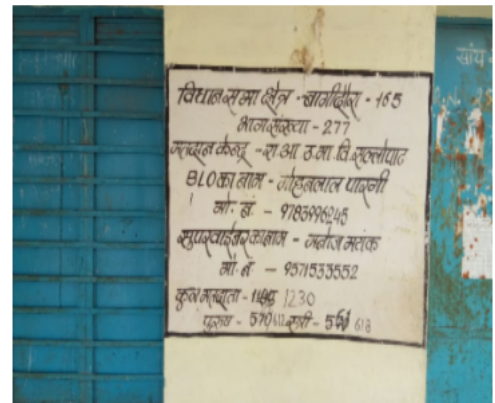 विधानसभा क्षेत्र - बागीदौरा - 165
भाग संख्या - 277
मतदान केन्द्र - रा आ उ मा वि सल्लोपाट
BLO का नाम - मोहनलाल पारगी
मो. नं. - 9783996245
सुपरवाईजर का नाम -
मो. नं - 9571533552
कुल मतदाता - 1230
पुरुष - 570 612 स्त्री - 618